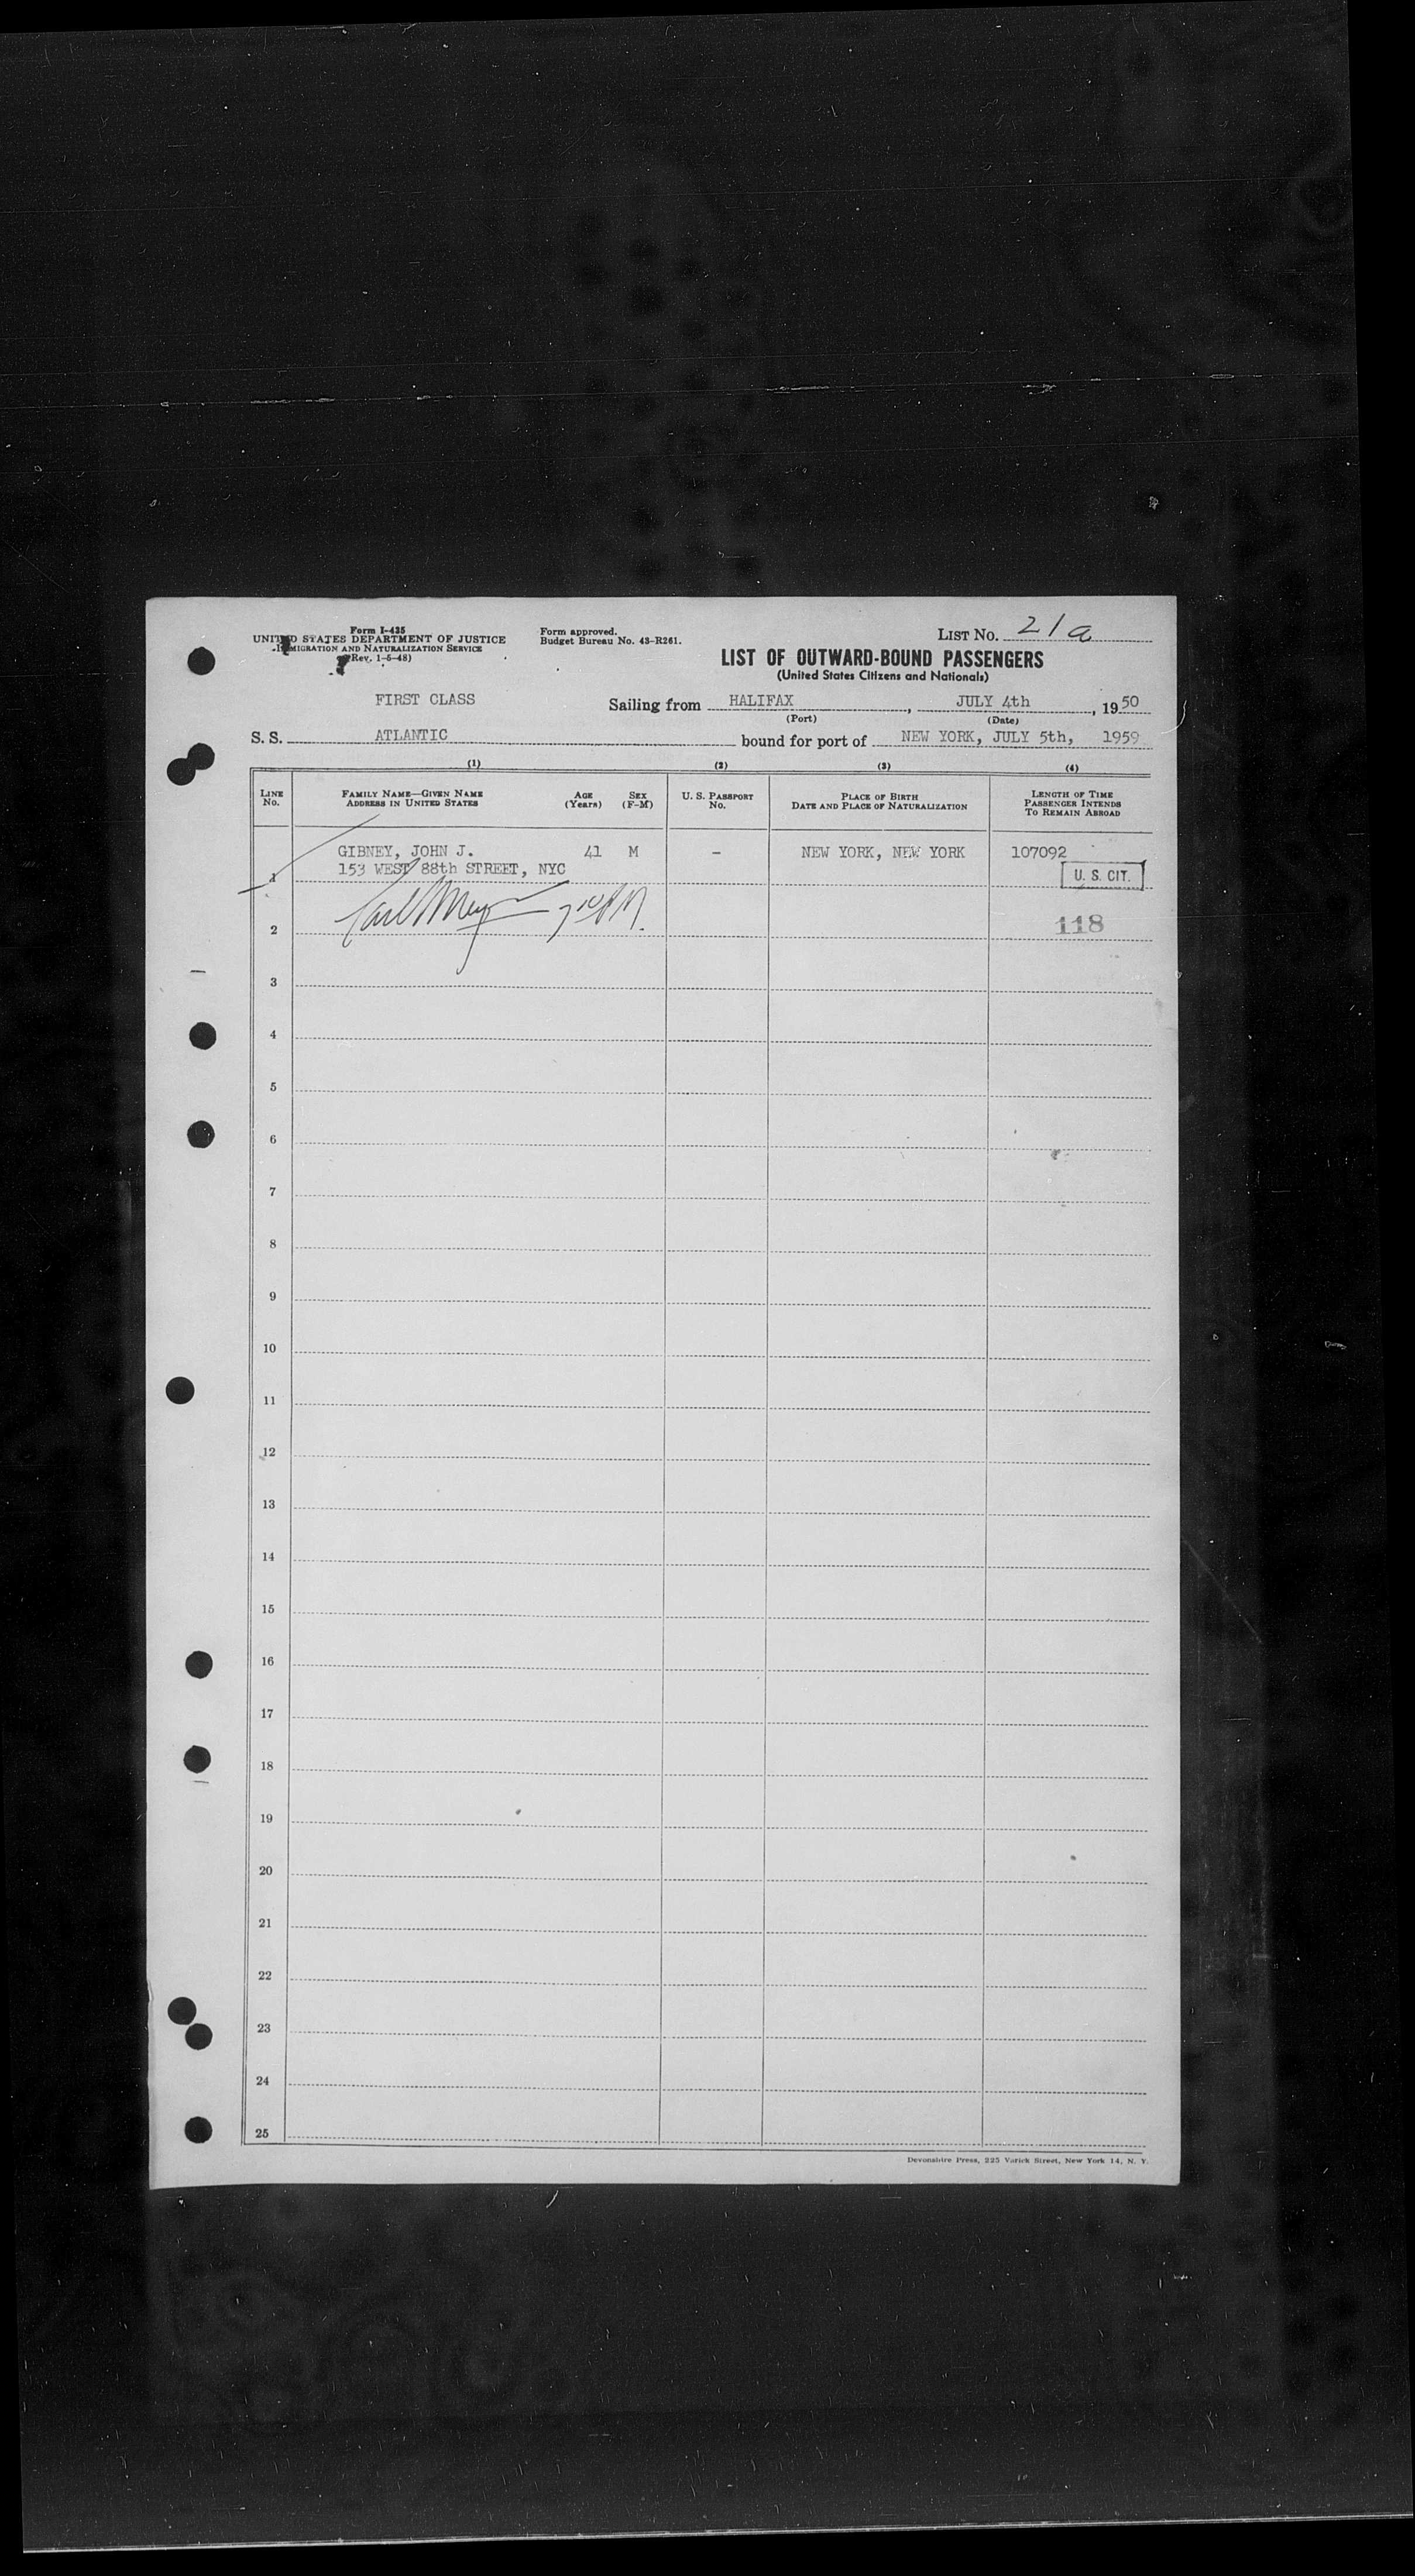 Form I-435
UNITED STATES DEPARTMENT OF JUSTICE
IMMIGRATION AND NATURALIZATION SERVICE
(Rev. 1-5-48)
Form approved.
Budget Bureau No. 43-R261.
LIST No. 21a
LIST OF OUTWARD-BOUND PASSENGERS
(United States Citizens and Nationals)
FIRST CLASS Sailing from HALIFAX, JULY 4th, 1950
(Port) (Date)
S. S. ATLANTIC bound for port of NEW YORK, JULY 5th, 1959
(1) (2) (3) (4)
LINE No. FAMILY NAME—GIVEN NAME ADDRESS IN UNITED STATES AGE (Years) SEX (F-M) U. S. PASSPORT No. PLACE OF BIRTH DATE AND PLACE OF NATURALIZATION LENGTH OF TIME PASSENGER INTENDS TO REMAIN ABROAD
GIBNEY, JOHN J. 41 M - NEW YORK, NEW YORK 107092
1 153 WEST 88th STREET, NYC U. S. CIT.
2 118
3
4
5
6
7
8
9
10
11
12
13
14
15
16
17
18
19
20
21
22
23
24
25
Devonshire Press, 225 Varick Street, New York 14, N. Y.